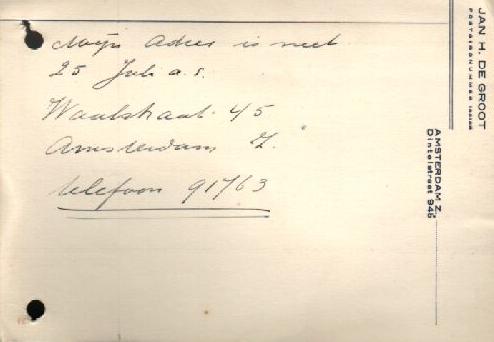 JAN H. DE GROOT
AMSTERDAM Z.
Dintelstraat 94
Mijn adres is met
25 Juli a.s.
Waalstraat 45
Amsterdam Z.
telefoon 91763